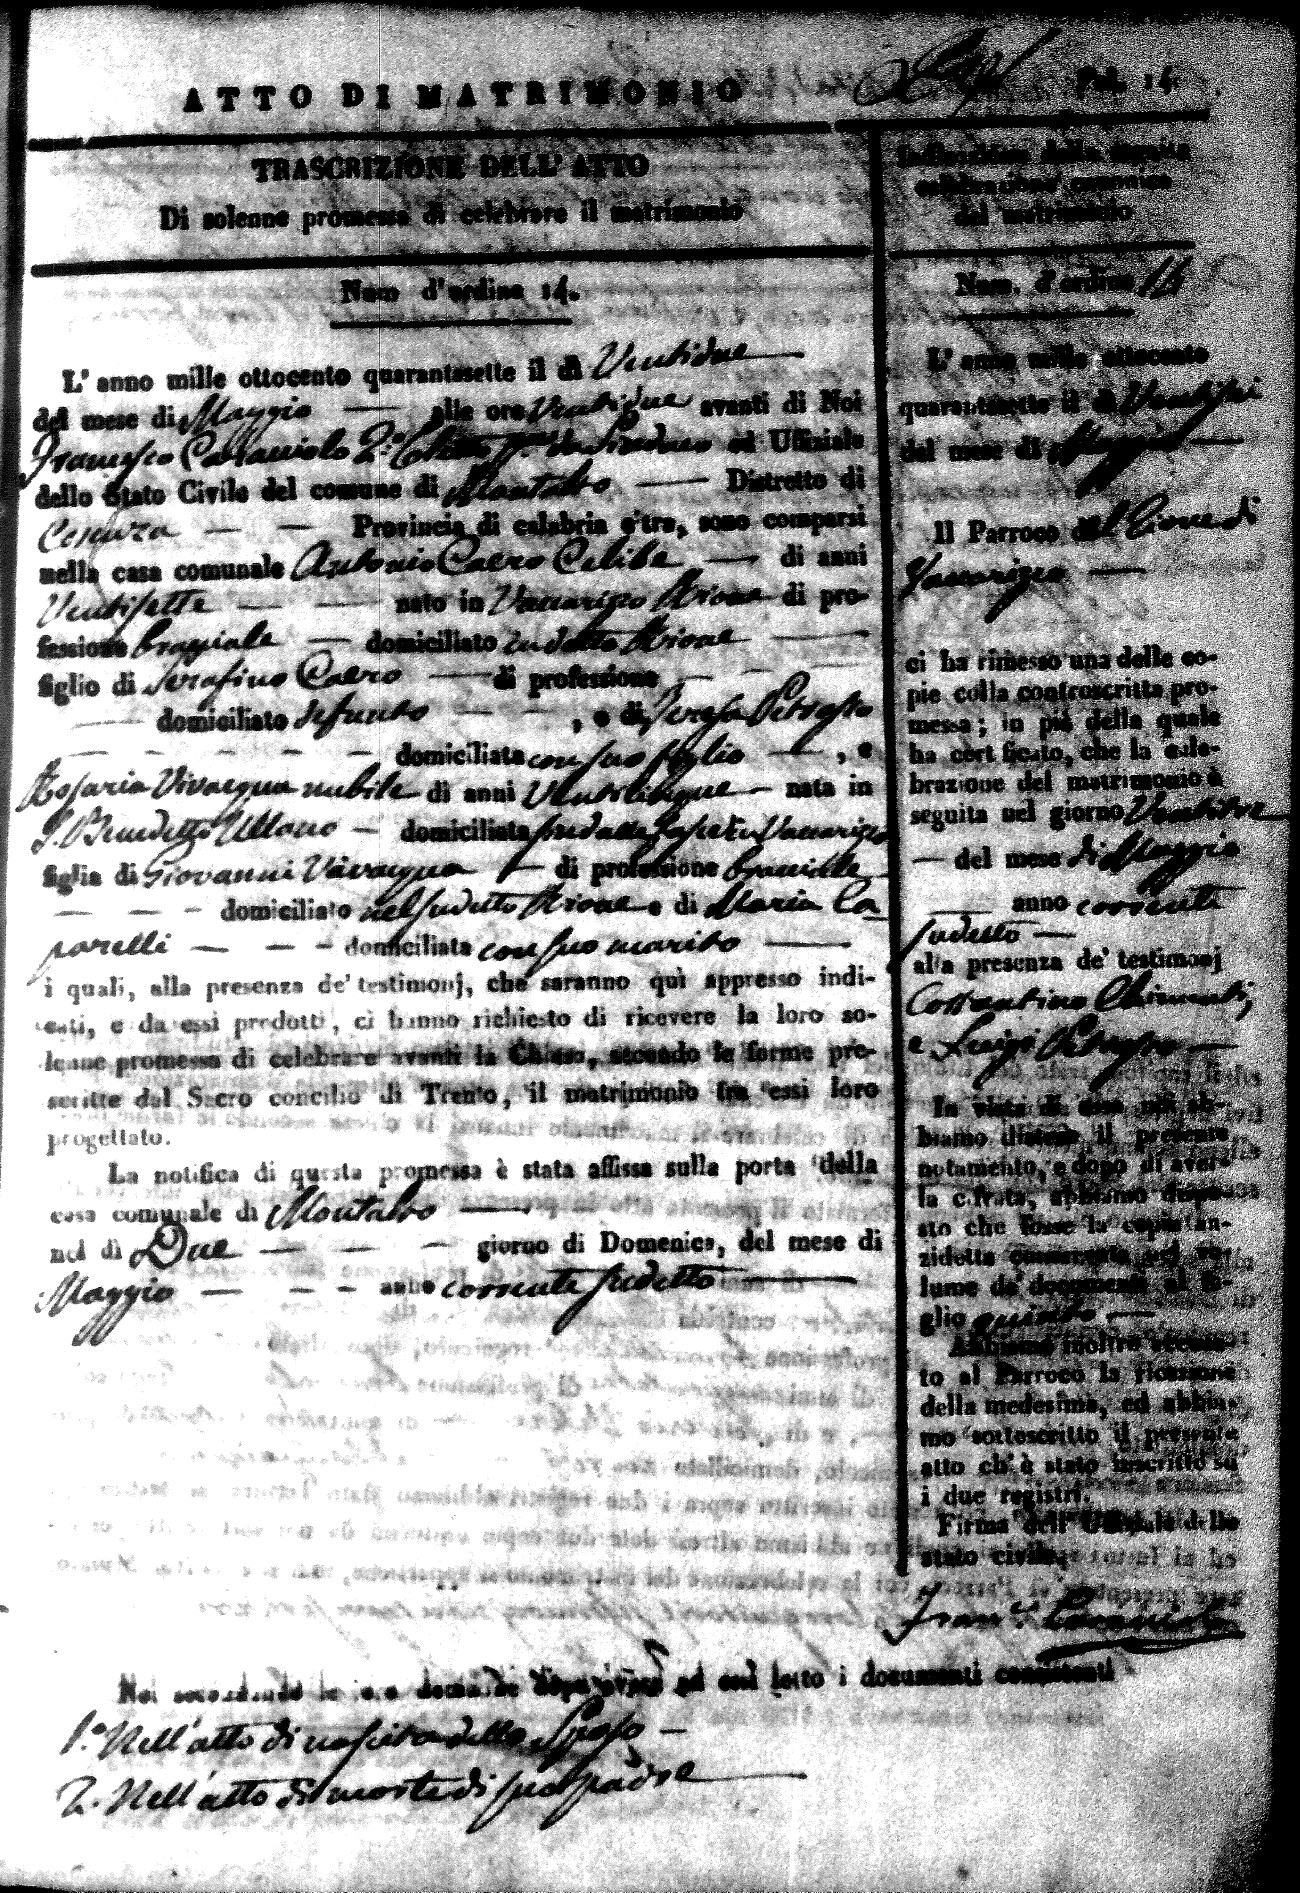 ATTO DI MATRIMONIO
Fol. 14.
TRASCRIZIONE DELL' ATTO
Di solenne promessa di celebrare il matrimonio
Num d'ordine 14.
L' anno mille ottocento quarantasette il dì Ventidue
del mese di Maggio alle ore Ventidue avanti di Noi
Francesco 2.º ed Uffiziale
dello Stato Civile del comune di Montalto Distretto di
Cosenza Provincia di calabria citra, sono comparsi
nella casa comunale Antonio Caero Celibe di anni
Ventisette nato in Vaccarizzo Rione di pro-
fessione bracciale domiciliato in detto Rione
figlio di Serafino Caero di professione
domiciliato defunto , e di Teresa
domiciliata con suo figlio , e
Rosaria Vivacqua nubile di anni Venticinque nata in
S. Benedetto Ullano domiciliata Vaccarizzo
figlia di Giovanni Vivacqua di professione bracciale
domiciliato nel sudetto Rione e di Maria Ca-
parelli domiciliata con suo marito
i quali, alla presenza de' testimonj, che saranno quì appresso indi-
cati, e da essi prodotti, ci hanno richiesto di ricevere la loro so-
lenne promessa di celebrare avanti la Chiesa, secondo le forme pre-
scritte dal Sacro concilio di Trento, il matrimonio tra essi loro
progettato.
La notifica di questa promessa è stata affissa sulla porta della
casa comunale di Montalto
nel dì Due giorno di Domenica, del mese di
Maggio anno corrente sudetto
Indicazione della seguita
celebrazione canonica
del matrimonio
Num. d'ordine 14
L' anno mille ottocento
quarantasette il dì Ventisei
del mese di Maggio
Il Parroco del Rione di
Vaccarizzo
ci ha rimesso una delle co-
pie colla controscritta pro-
messa; in piè della quale
ha certificato, che la cele-
brazione del matrimonio è
seguita nel giorno Ventitre
del mese di Maggio
anno corrente
sudetto
alla presenza de' testimonj
Costantino Chimenti,
e Luigi
In vista di essa noi ab-
biamo disteso il presente
notamento, e dopo di aver-
la cifrata, abbiamo dispo-
sto che fosse la copia an-
zidetta conservata nel vo-
lume de' documenti al fo-
glio quinto
Abbiamo inoltre accusa-
to al Parroco la ricezione
della medesima, ed abbia-
mo sottoscritto il presente
atto ch' è stato inscritto su
i due registri.
Firma dell' Uffiziale dello
stato civile.
Noi secondando le loro domande dopo avere ad essi letto i documenti consistenti
1.º Nell' atto di nascita dello Sposo
2. Nell' atto di morte di suo padre